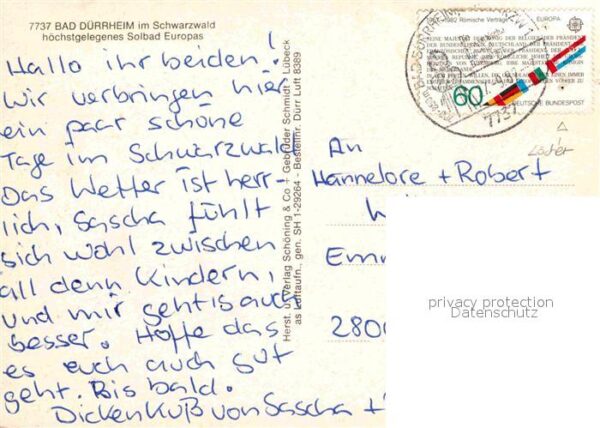 7737 BAD DÜRRHEIM im Schwarzwald
höchstgelegenes Solbad Europas
Hallo ihr beiden!
Wir verbringen hier
ein paar schöne
Tage im Schwarzwald
Das Wetter ist herr-
lich, Sascha fühlt
sich wohl zwischen
all denn Kindern,
und mir gehts auch
besser. Hoffe das
es euch auch gut
geht. Bis bald.
Dicken Kuß von Sascha +
Herst. u. Verlag Schöning & Co + Gebrüder Schmidt · Lübeck
as Luftaufn., gen. SH 1-29264 - Bestellnr. Dürr Luft 8389
1957-1982 Römische Verträge EUROPA
60
DEUTSCHE BUNDESPOST
7737
Löcher
An
Hannelore + Robert
Emm
2800
privacy protection
Datenschutz